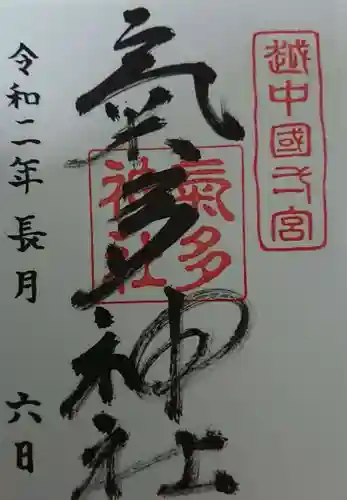 越中國弌宮
氣多神社
氣多
神社
令和二年 長月 六日